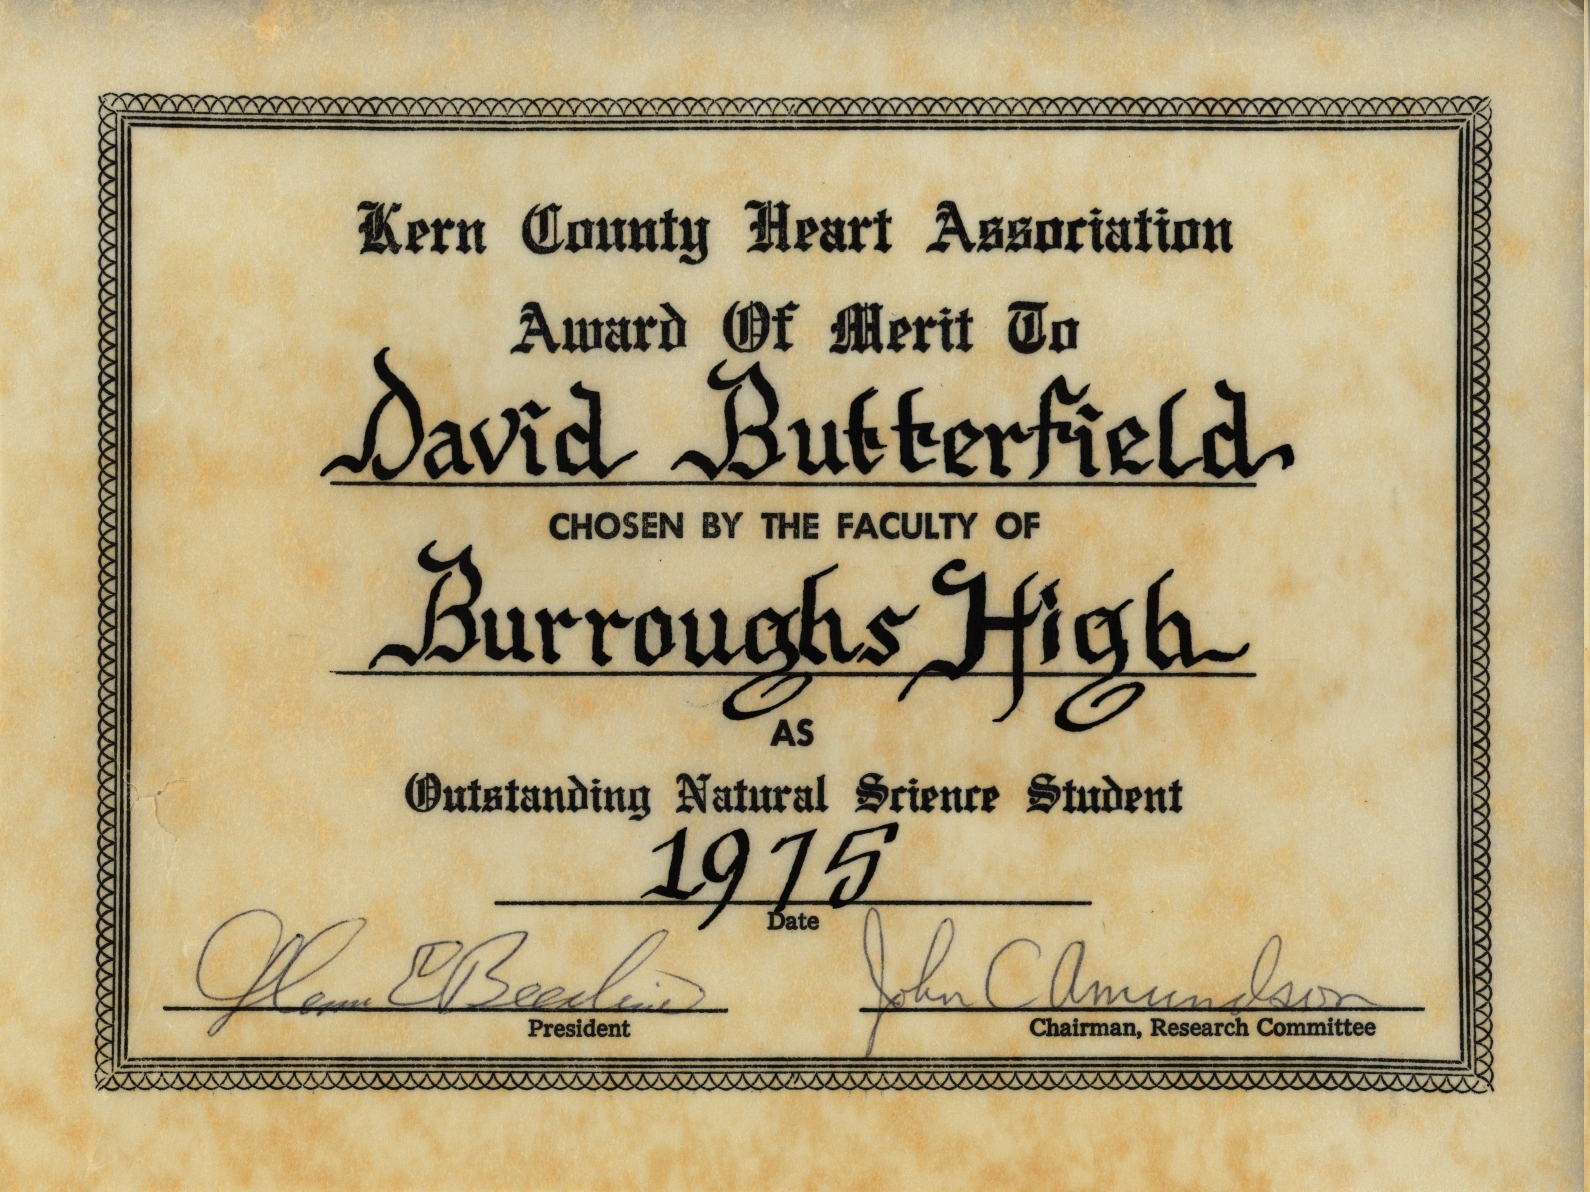 Kern County Heart Association
Award Of Merit To
David Butterfield
CHOSEN BY THE FACULTY OF
Burroughs High
AS
Outstanding Natural Science Student
1975
Date
John C Amundson
President
Chairman, Research Committee